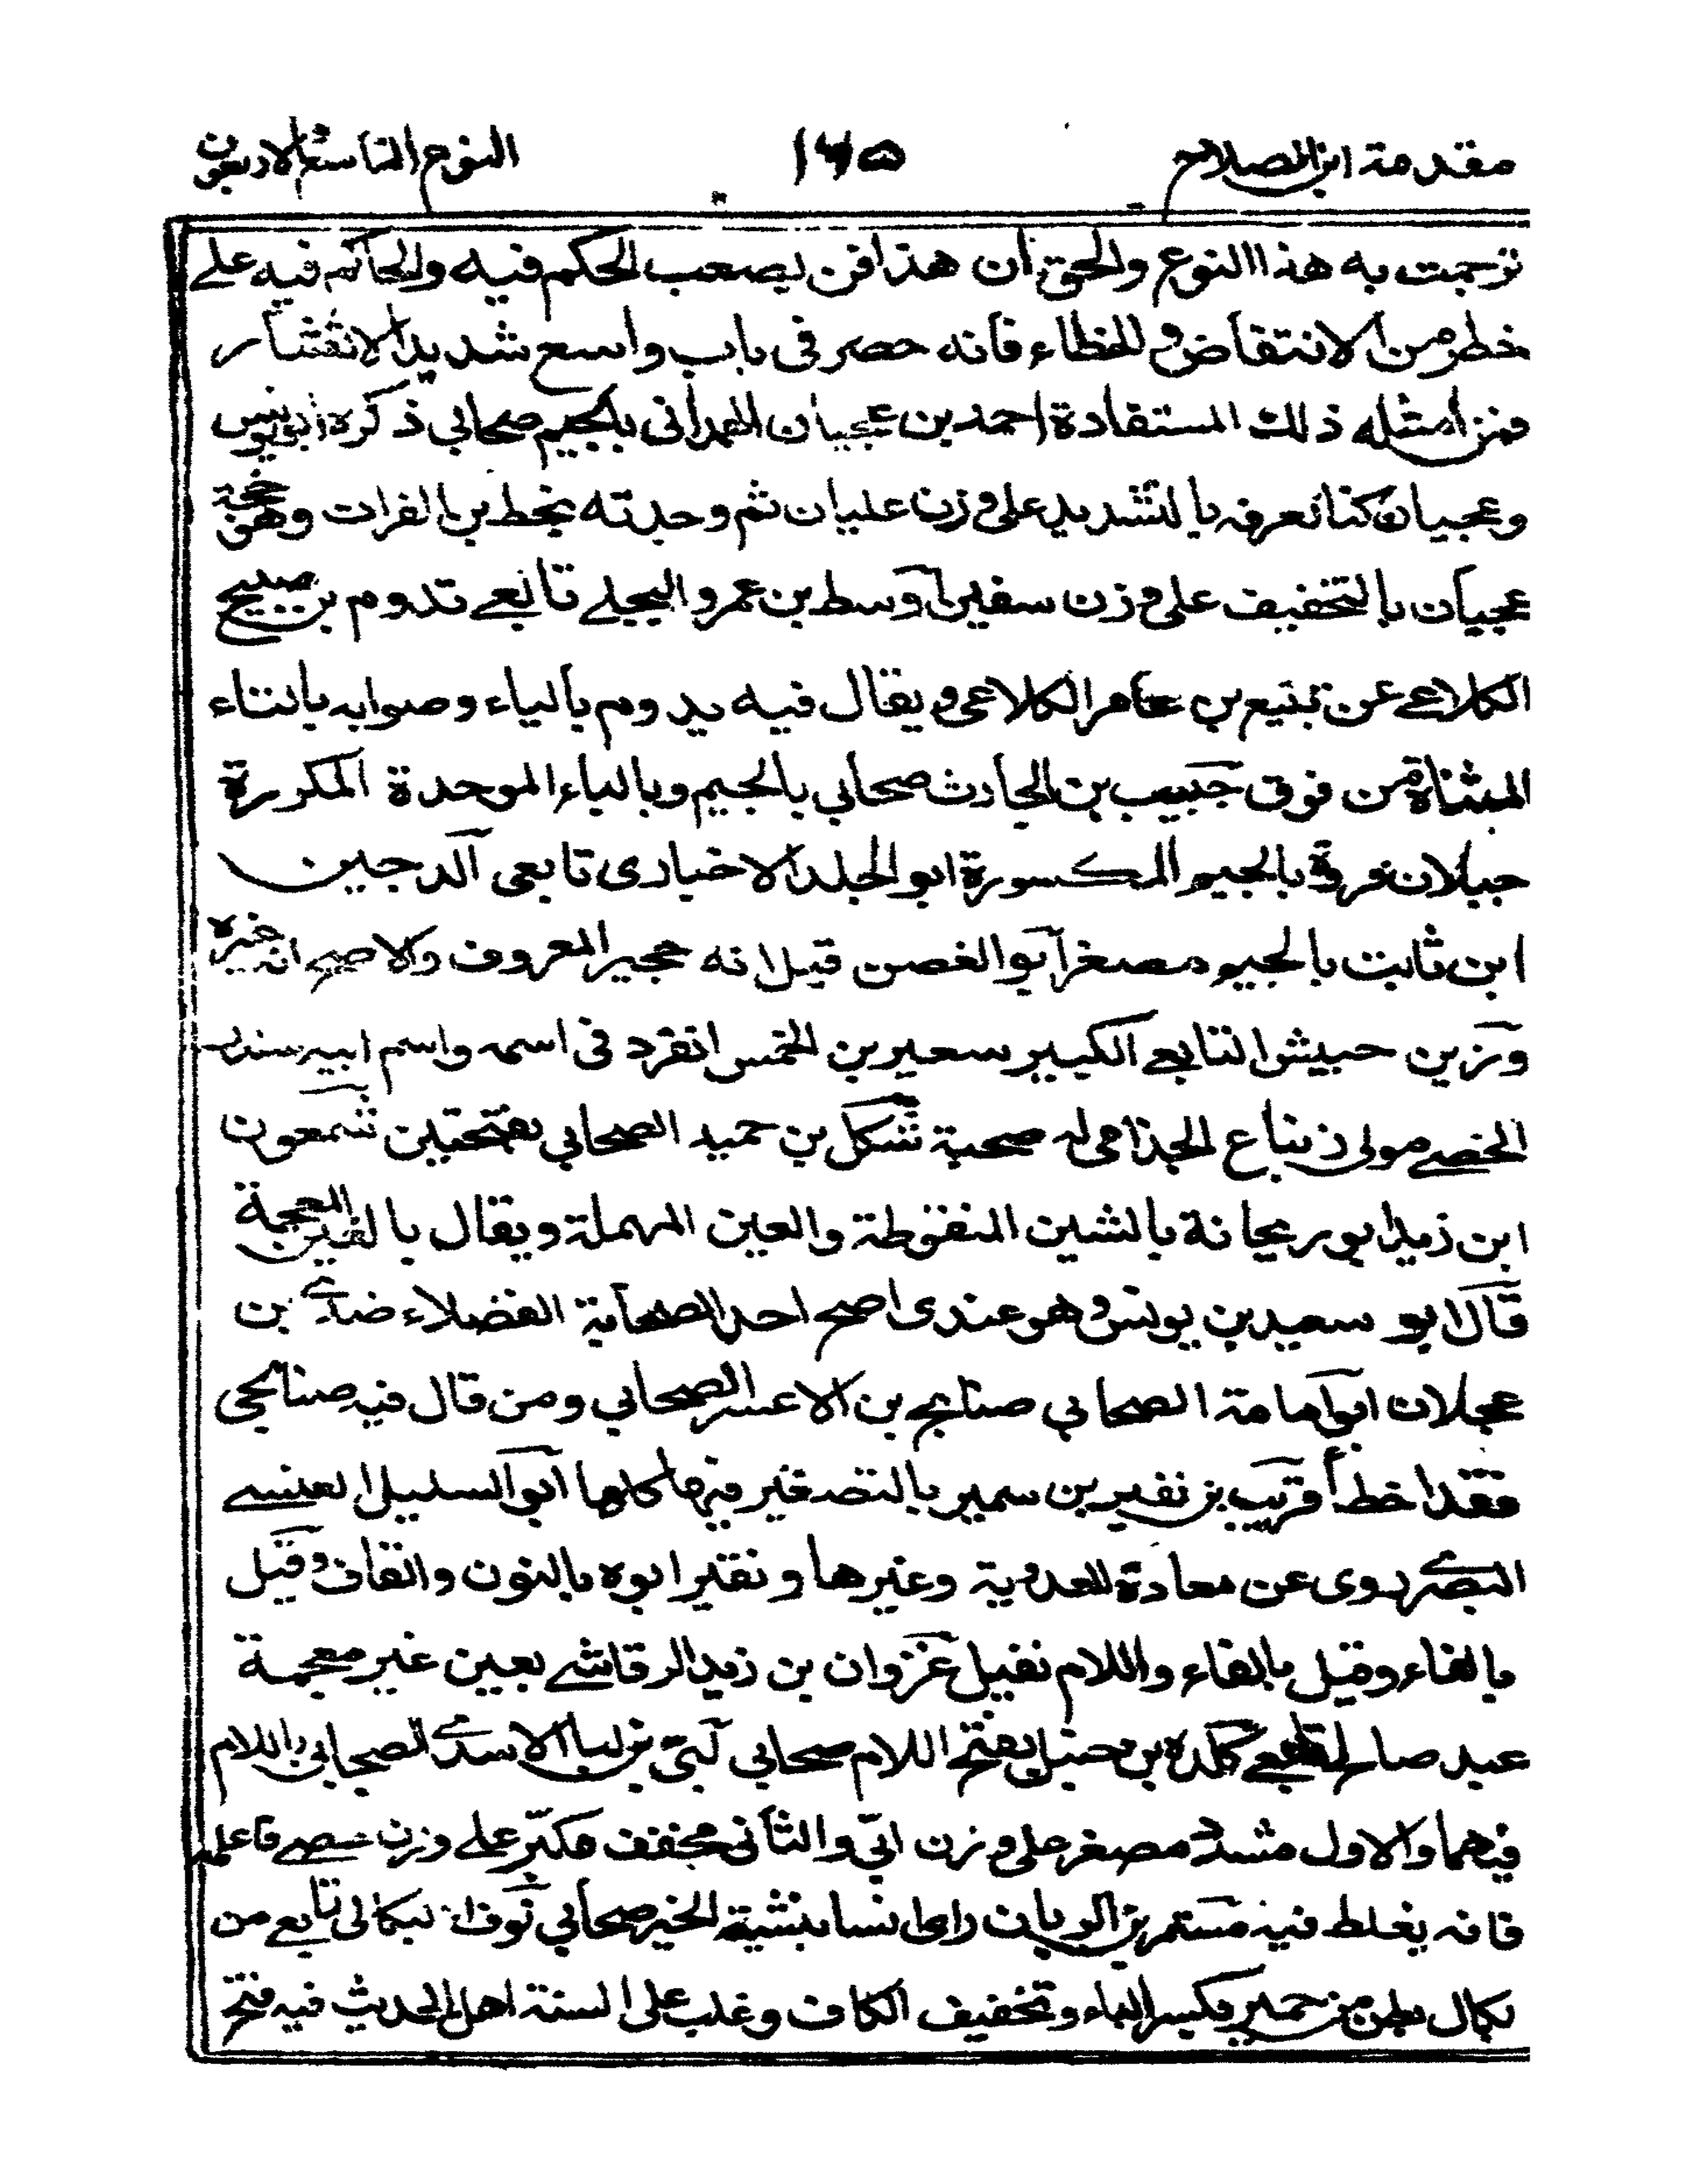 مقدمة ابن الصلاح ١٦٥ النوع التاسع والاربعون
ترجمت به هذا النوع والحق ان هذا فن يصعب الحكم فيه والحاكم فيه على
خطر من الانتقاض والخطاء فانه حصر فى باب واسع شديد الانتشار
فمن أمثله ذلك المستفادة احمد بن عجيان الهمدانى بالجيم صحابي ذكره ابن يونس
وعجيان كنا نعرفه بالتشديد على وزن عليان ثم وجدته بخط بن الفرات وهو حجة
عجيان بالتخفيف على وزن سفيان اوسط بن عمرو البجلے تابعے تدوم بن صبيح
الكلاعے عن تبيع بن عامر الكلاعى ويقال فيه يدوم بالياء وصوابه بالتاء
المثناة من فوق جبيب بن الحارث صحابي بالجيم وبالباء الموحدة المكررة
جيلان فروة بالجيم المكسورة ابو الجلد الاخبارى تابعى الدجين
ابن ثابت بالجيم مصغر ابو الغصن قيل انه جحير المعروف والاصح انه غيره
وزر بن حبيش التابعے الكبير سعير بن الخمس انفرد فى اسمه واسم ابيه سندر
الخصے مولى زنباع الجذامى له صحبة شكل بن حميد الصحابي بفتحتين شمعون
ابن زيد ابو ريحانة بالشين المنقوطة والعين المهملة ويقال بالغين المعجمة
قال ابو سعيد بن يونس وهو عندى اصح احد الصحابة الفضلاء صدے بن
عجلان ابو امامة الصحابي صنابح بن الاعسر الصحابي ومن قال فيه صنابحى
فقد اخطأ قريب بن نفير بن سمير بالتصغير فيها كلها ابو السليل العنسے
البصرے روى عن معاذة العدوية وغيرها ونقير ابوه بالنون والقاف وقيل
بالفاء وقيل بالفاء واللام نفيل عزوان بن زيد الرقاشے بعين غير معجمة
عبد صالح تابعے كلده بن حنبل بفتح اللام صحابي لبى بن لبا الاسدے الصحابى باللام
فيهما والاول مشدد مصغر على وزن ابي والثانى مخفف مكبر علے وزن عصے فاعلمه
فانه يغلط فيه مستمر بن الريان راى انسا نبيشة الخير صحابي نوف البكالى تابعے من
بكال بطن من حمير بكسر الباء وتخفيف الكاف وغلب على السنة اهل الحديث فيه فتح